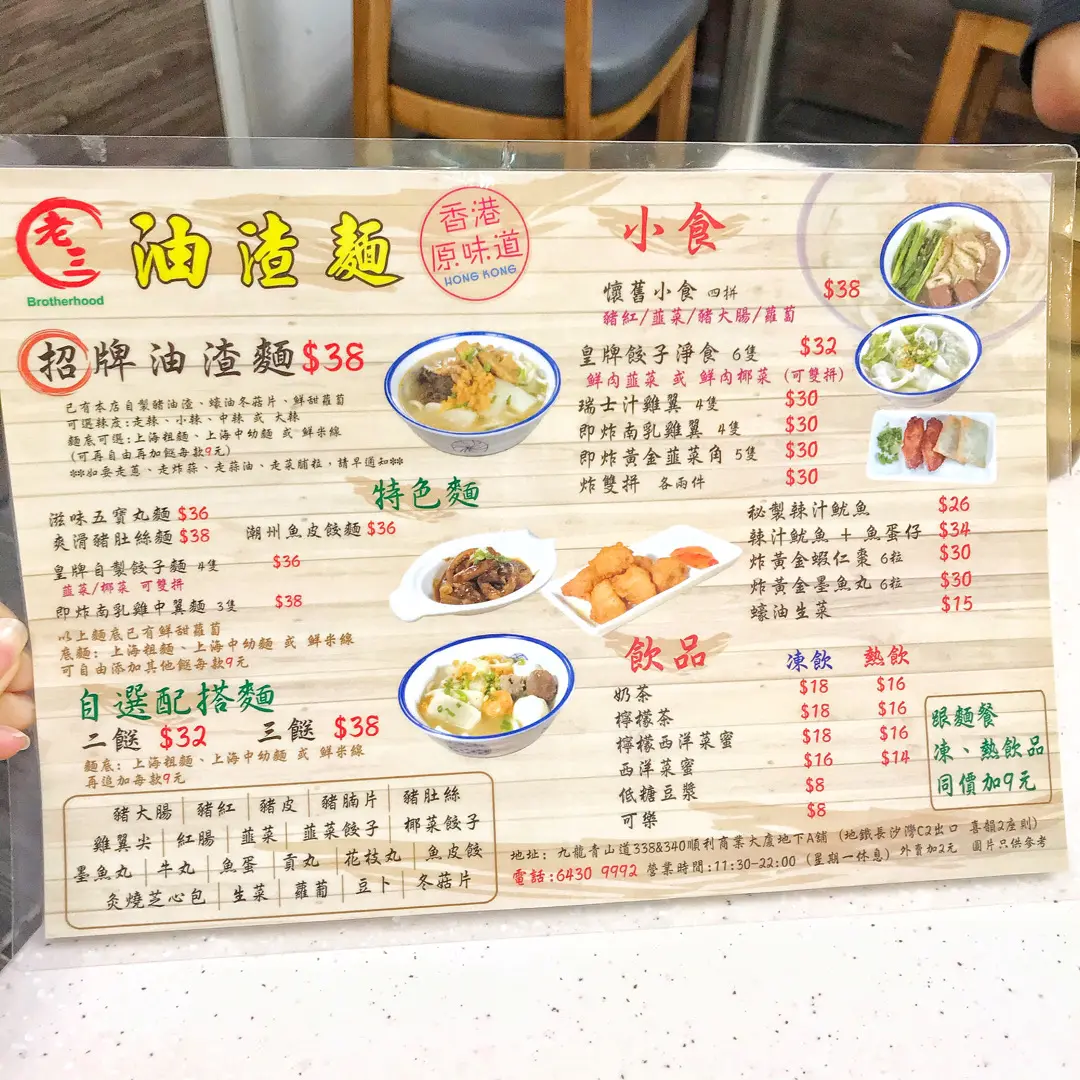 老三
Brotherhood
油渣麵
香港
原味道
HONG KONG
招牌油渣麵 $38
已有本店自製豬油渣、蠔油冬菇片、鮮甜蘿蔔
可選辣度:走辣、小辣、中辣 或 大辣
麵底可選:上海粗麵、上海中幼麵 或 鮮米線
(可再自由再加餸每款9元)
**如要走蔥、走炸蒜、走蒜油、走菜脯粒,請早通知**
特色麵
滋味五寶丸麵 $36
爽滑豬肚絲麵 $38 潮州魚皮餃麵 $36
皇牌自製餃子麵 4隻 $36
韮菜/椰菜 可雙拼
即炸南乳雞中翼麵 3隻 $38
以上麵底已有鮮甜蘿蔔
底麵: 上海粗麵、上海中幼麵 或 鮮米線
可自由添加其他餸每款9元
自選配搭麵
二餸 $32 三餸 $38
麵底: 上海粗麵、上海中幼麵 或 鮮米線
再追加每款9元
豬大腸 | 豬紅 | 豬皮 | 豬腩片 | 豬肚絲
雞翼尖 | 紅腸 | 韮菜 | 韮菜餃子 | 椰菜餃子
墨魚丸 | 牛丸 | 魚蛋 | 貢丸 | 花枝丸 | 魚皮餃
炙燒芝心包 | 生菜 | 蘿蔔 | 豆卜 | 冬菇片
小食
懷舊小食 四拼 $38
豬紅/韮菜/豬大腸/蘿蔔
皇牌餃子淨食 6隻 $32
鮮肉韮菜 或 鮮肉椰菜 (可雙拼)
瑞士汁雞翼 4隻 $30
即炸南乳雞翼 4隻 $30
即炸黃金韮菜角 5隻 $30
炸雙拼 各兩件 $30
秘製辣汁魷魚 $26
辣汁魷魚 + 魚蛋仔 $34
炸黃金蝦仁棗 6粒 $30
炸黃金墨魚丸 6粒 $30
蠔油生菜 $15
飲品 凍飲 熱飲
奶茶 $18 $16
檸檬茶 $18 $16
檸檬西洋菜蜜 $18 $16
西洋菜蜜 $16 $14
低糖豆漿 $8
可樂 $8
跟麵餐
凍、熱飲品
同價加9元
地址: 九龍青山道338&340順利商業大廈地下A舖 (地鐵長沙灣C2出口 喜韻2座則)
電話:6430 9992 營業時間:11:30-22:00 (星期一休息) 外賣加2元 圖片只供參考